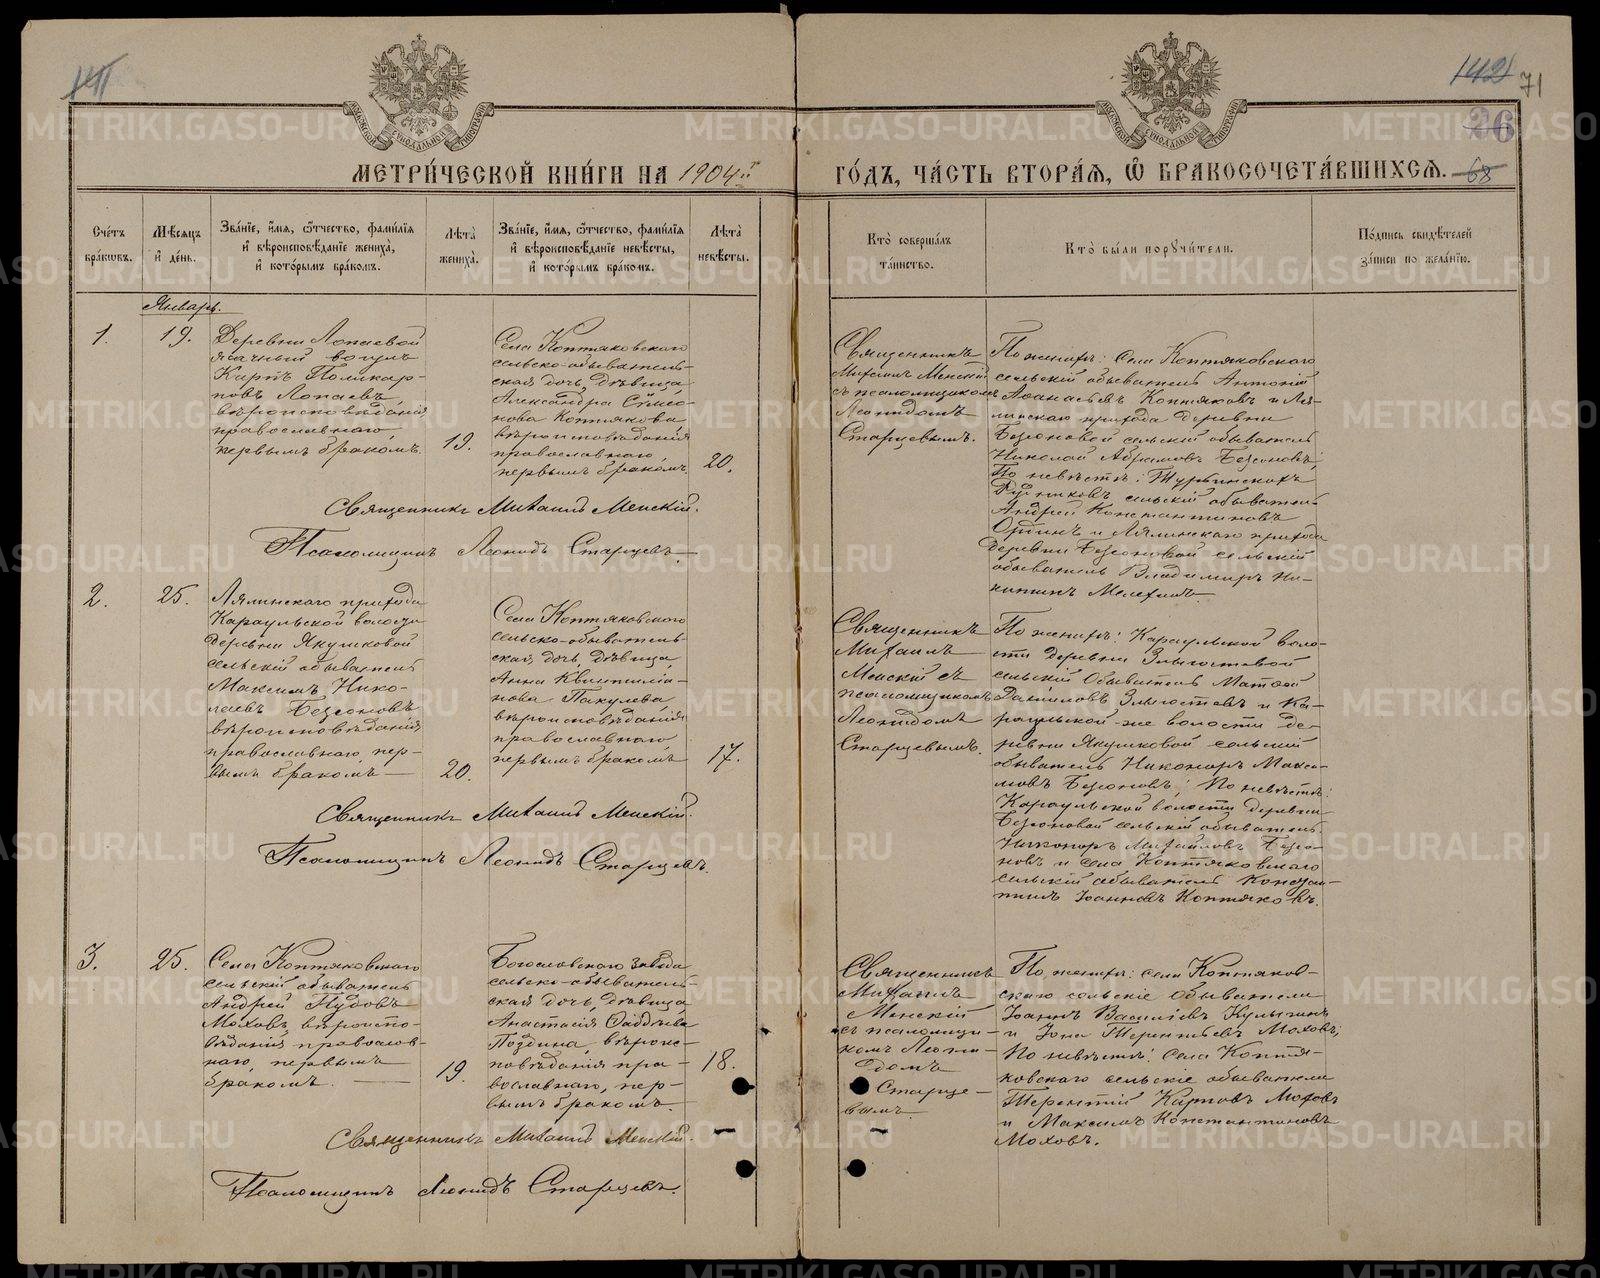 142
71
26
68
МЕТРИ́ЧЕСКОЙ КНИ́ГИ НА 1904й
ГО́ДЪ, ЧА́СТЬ ВТОРА́Я, Ѽ БРАКОСОЧЕТА́ВШИХСЯ.
Сче́тъ бра́кωвъ.
Мѣ́сяцъ и҆ де́нь.
Зва́нїе, и҆́мя, ѻ҆́тчество, фами́лїя
и҆ вѣроисповѣ́данїе жениха̀,
и҆ кото́рымъ бра́комъ.
Лѣ́та жениха̀.
Зва́нїе, и҆́мя, ѻ҆́тчество, фами́лїя
и҆ вѣроисповѣ́данїе невѣ́сты,
и҆ кото́рымъ бра́комъ.
Лѣ́та невѣ́сты.
Кто̀ соверша́лъ
та́инство.
Кто̀ бы́ли порꙋчи́тели.
По́дпись свидѣ́телей
за́писи по жела́нїю.
Январь.
1.
19.
Деревни Лопаевой
ясачный вогулъ
Карпъ Поликар-
повъ Лопаевъ,
вѣроисповѣданія
православнаго,
первымъ бракомъ.
19.
Села Коптяковскаго
сельско-обыватель-
ская дочь, дѣвица
Александра Сѵмео-
нова Коптякова
вѣроисповѣданія
православнаго,
первымъ бракомъ.
20.
Священникъ
Михаилъ Менскій
съ псаломщикомъ
Леонидомъ
Старцевымъ.
По женихѣ: Села Коптяковскаго
сельскій обыватель Антоній
Аѳанасьевъ Коптяковъ и Ля-
линскаго прихода деревни
Безсоновой сельскій обыватель
Николай Абрамовъ Безсоновъ;
По невѣстѣ: Турьинскихъ
Рудниковъ сельскій обыватель
Андрей Константиновъ
и Лялинскаго прихода
деревни Безсоновой сельскій
обыватель Владиміръ Ни-
китинъ
Священникъ Михаилъ Менскій.
Псаломщикъ Леонидъ Старцевъ.
2.
25.
Лялинскаго прихода
Караульской волости
деревни Якушковой
сельскій обыватель
Максимъ Нико-
лаевъ Безсоновъ
вѣроисповѣданія
православнаго, пер-
вымъ бракомъ
20.
Села Коптяковскаго
сельско-обыватель-
ская дочь, дѣвица
Анна Квинтилiа-
нова Пакулева
вѣроисповѣданія
православнаго
первымъ бракомъ
17.
Священникъ
Михаилъ
Менскій съ
псаломщикомъ
Леонидомъ
Старцевымъ.
По женихѣ: Караульской воло-
сти деревни Злыгостевой
сельскій обыватель Матѳей
Даниловъ Злыгостевъ и Ка-
раульской же волости де-
ревни Якушковой сельскій
обыватель Никоноръ Макси-
мовъ Безсоновъ; По невѣстѣ:
Караульской волости деревни
Безсоновой сельскій обыватель
Никоноръ Михаиловъ Безсо-
новъ и села Коптяковскаго
сельскій обыватель Констан-
тинъ Іоанновъ Коптяковъ.
Священникъ Михаилъ Менскій.
Псаломщикъ Леонидъ Старцевъ.
3.
25.
Села Коптяковскаго
сельскій обыватель
Андрей Нудовъ
Моховъ, вѣроиспо-
вѣданія православ-
наго, первымъ
бракомъ.
19.
Богословскаго завода
сельско-обыватель-
ская дочь, дѣвица
Анастасія Ѳаддѣева
Поздина, вѣроис-
повѣданія пра-
вославнаго, пер-
вымъ бракомъ.
18.
Священникъ
Михаилъ
Менскій
съ псаломщи-
комъ Леони-
домъ
Старце-
вымъ
По женихѣ: села Коптяков-
скаго сельскіе обыватели
Іоаннъ Василіевъ Кулыгинъ
и Іона Терентьевъ Моховъ;
По невѣстѣ: Села Коптя-
ковскаго сельскіе обыватели
Терентій Карповъ Моховъ
и Максимъ Константиновъ
Моховъ.
Священникъ Михаилъ Менскій.
Псаломщикъ Леонидъ Старцевъ.
METRIKI.GASO-URAL.RU